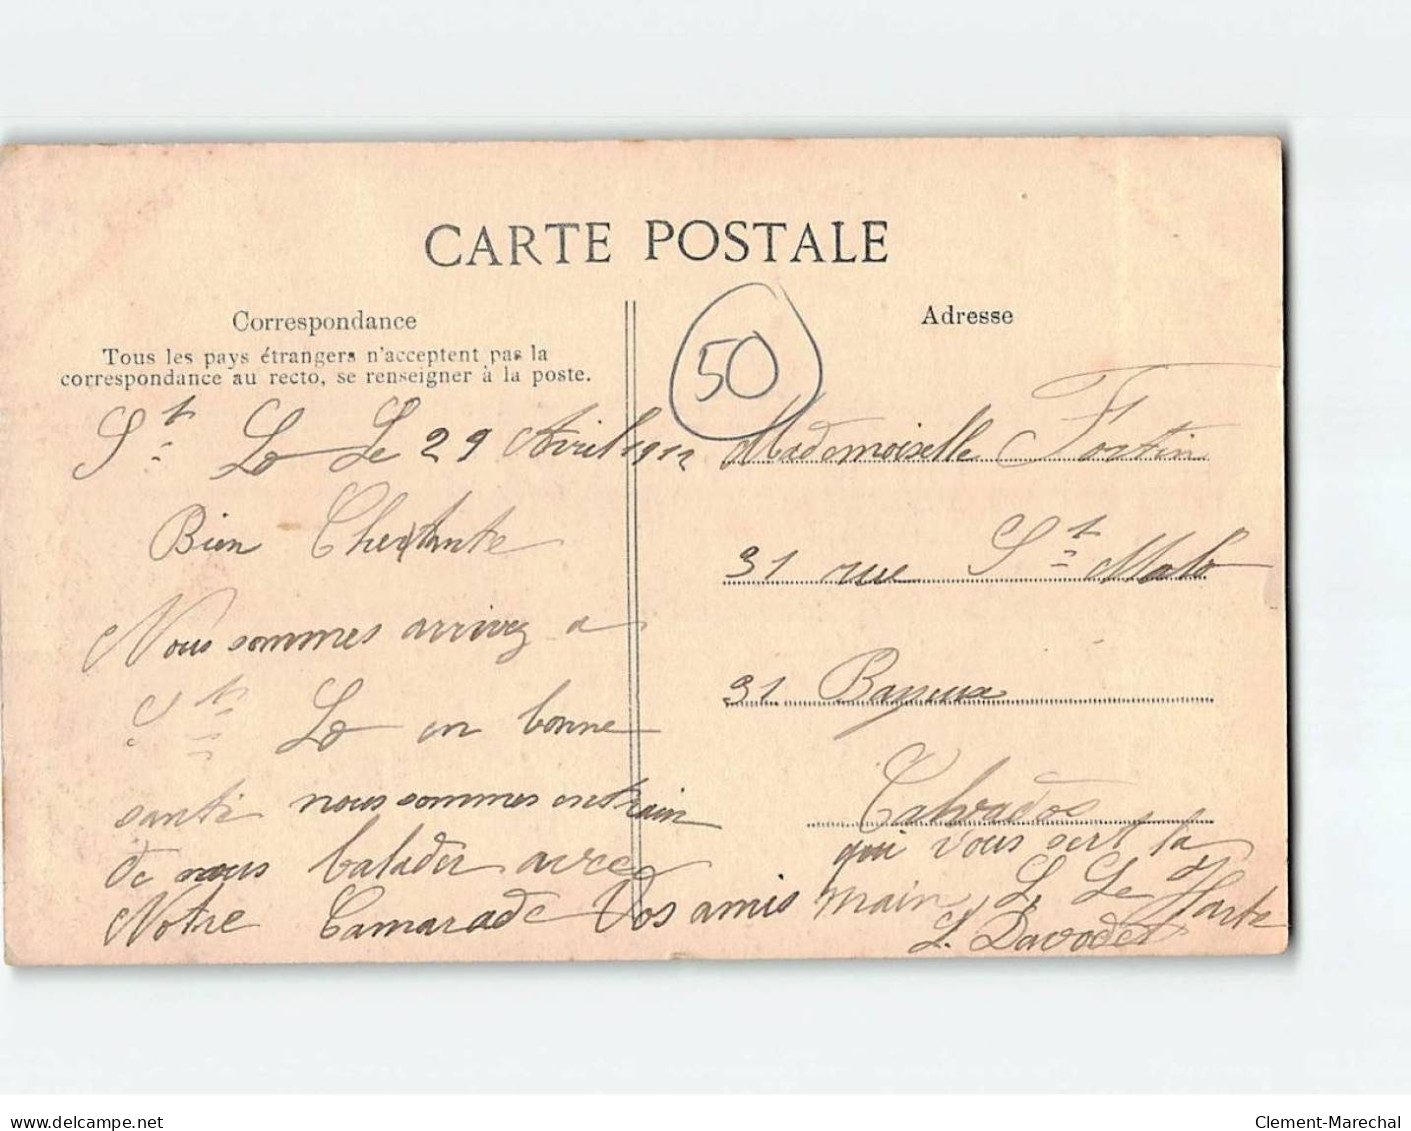 CARTE POSTALE
Correspondance
Tous les pays étrangers n'acceptent pas la
correspondance au recto, se renseigner à la poste.
St Lo Le 29 Avril 1912
Bien
Nous sommes arrivez a
St Lo en bonne
santi nous sommes entrain
de nous balader avec
Notre Camarade Vos amis
qui vous sert la
main, L. Le
L. Davodet
50
Adresse
Mademoiselle Fortin
31 rue St Malo
31 Bayeux
Calvados
delcampe.net
Clement-Marechal